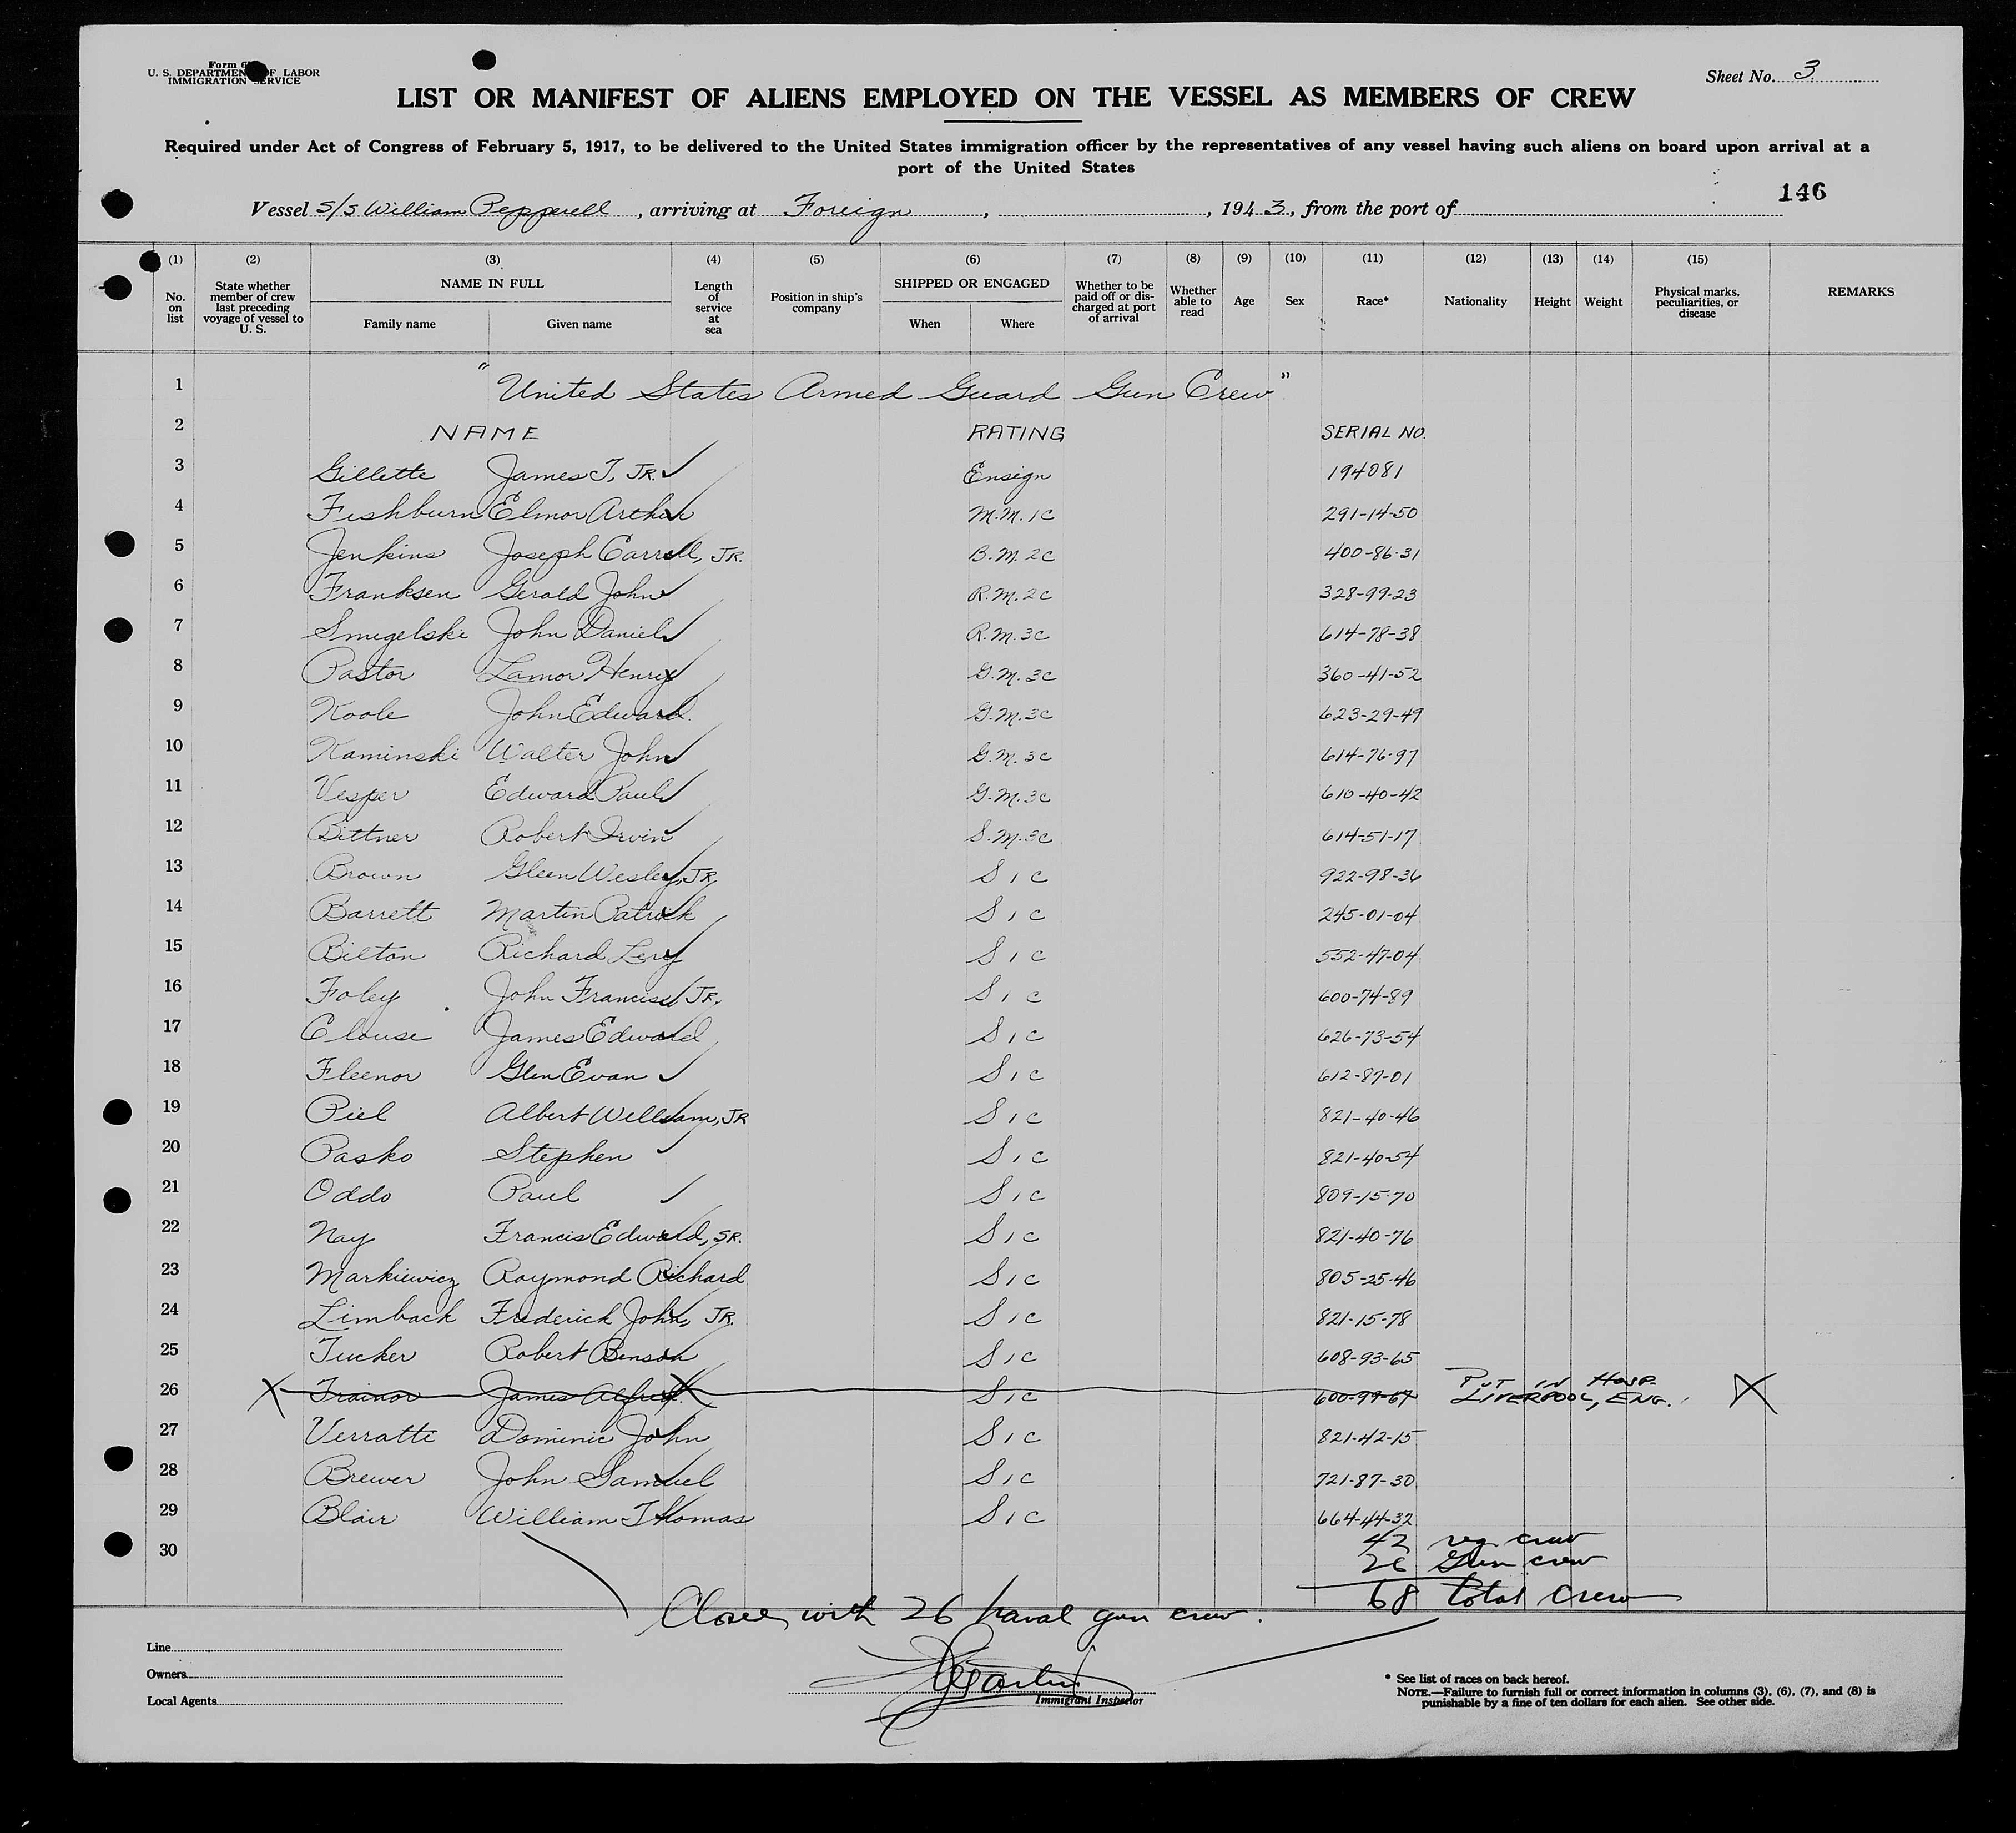 Form 6
U. S. DEPARTMENT OF LABOR
IMMIGRATION SERVICE
Sheet No. 3
LIST OR MANIFEST OF ALIENS EMPLOYED ON THE VESSEL AS MEMBERS OF CREW
Required under Act of Congress of February 5, 1917, to be delivered to the United States immigration officer by the representatives of any vessel having such aliens on board upon arrival at a
port of the United States
146
Vessel S/S William Pepperell, arriving at Foreign, , 1943, from the port of
(1) (2) (3) (4) (5) (6) (7) (8) (9) (10) (11) (12) (13) (14) (15)
No. on list State whether member of crew last preceding voyage of vessel to U. S. NAME IN FULL Family name Given name Length of service at sea Position in ship's company SHIPPED OR ENGAGED When Where Whether to be paid off or discharged at port of arrival Whether able to read Age Sex Race* Nationality Height Weight Physical marks, peculiarities, or disease REMARKS
1 "United States Armed Guard Gun Crew"
2 NAME RATING SERIAL NO.
3 Gillette James T, JR. Ensign 194081
4 Fishburn Elmor Arthur M.M.1C 291-14-50
5 Jenkins Joseph Carrell, JR. B.M.2C 400-86-31
6 Franksen Gerald John R.M.2C 328-99-23
7 Smigelski John Daniel R.M.3C 614-78-38
8 Pastor Lamor Henry G.M.3C 360-41-52
9 Koole John Edward. G.M.3C 623-29-49
10 Kaminski Walter John G.M.3C 614-76-97
11 Vesper Edward Paul G.M.3C 610-40-42
12 Bittner Robert Irvin S.M.3C 614-51-17
13 Brown Gleen Wesley, JR. S1C 922-98-36
14 Barrett Martin Patrick S1C 245-01-04
15 Bilton Richard Leroy S1C 552-47-04
16 Foley John Francis JR. S1C 600-74-89
17 Clouse James Edward S1C 626-73-54
18 Fleenor Glen Evan S1C 612-87-01
19 Piel Albert William, JR S1C 821-40-46
20 Pasko Stephen S1C 821-40-54
21 Oddo Paul S1C 809-15-70
22 Nay Francis Edward, SR. S1C 821-40-76
23 Markiewicz Raymond Richard S1C 805-25-46
24 Limback Frederick John, JR. S1C 821-15-78
25 Tucker Robert Benson S1C 608-93-65
26 X Trainor James Alfred. X S1C 600-99-67 PUT IN HOSP. LIVERPOOL, ENG. X
27 Verratti Dominic John S1C 821-42-15
28 Brewer John Samuel S1C 721-87-30
29 Blair William Thomas S1C 664-44-32
30 42 reg. crew
26 Gun crew
68 total crew
Closes with 26 naval gun crew.
Line
Owners
Local Agents
Immigrant Inspector
* See list of races on back hereof.
NOTE.—Failure to furnish full or correct information in columns (3), (6), (7), and (8) is
punishable by a fine of ten dollars for each alien. See other side.